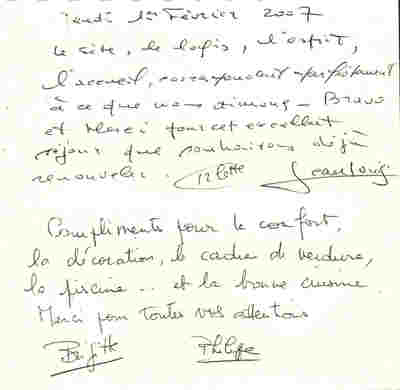 Jeudi 1er Février 2007
Le site, le logis, l'esprit,
l'accueil, correspondent parfaitement
à ce que nous aimons - Bravo
et Merci pour cet excellent
séjour que souhaitons déjà
renouveler. Jean Louis
Compliments pour le confort,
la décoration, le cadre de verdure,
la piscine... et la bonne cuisine
Merci pour toutes vos attentions
Brigitte Philippe